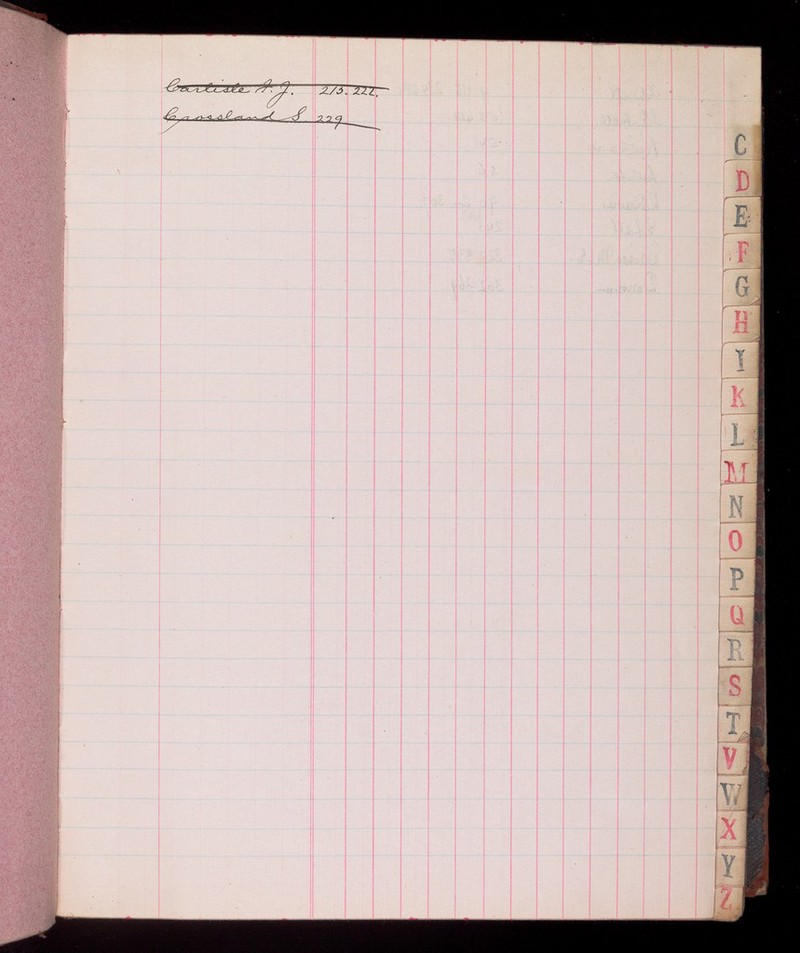 Carlisle A. J. 215. 222.
Crossland S 229
C
D
E
F
G
H
I
K
L
M
N
O
P
Q
R
S
T
V
W
X
Y
Z